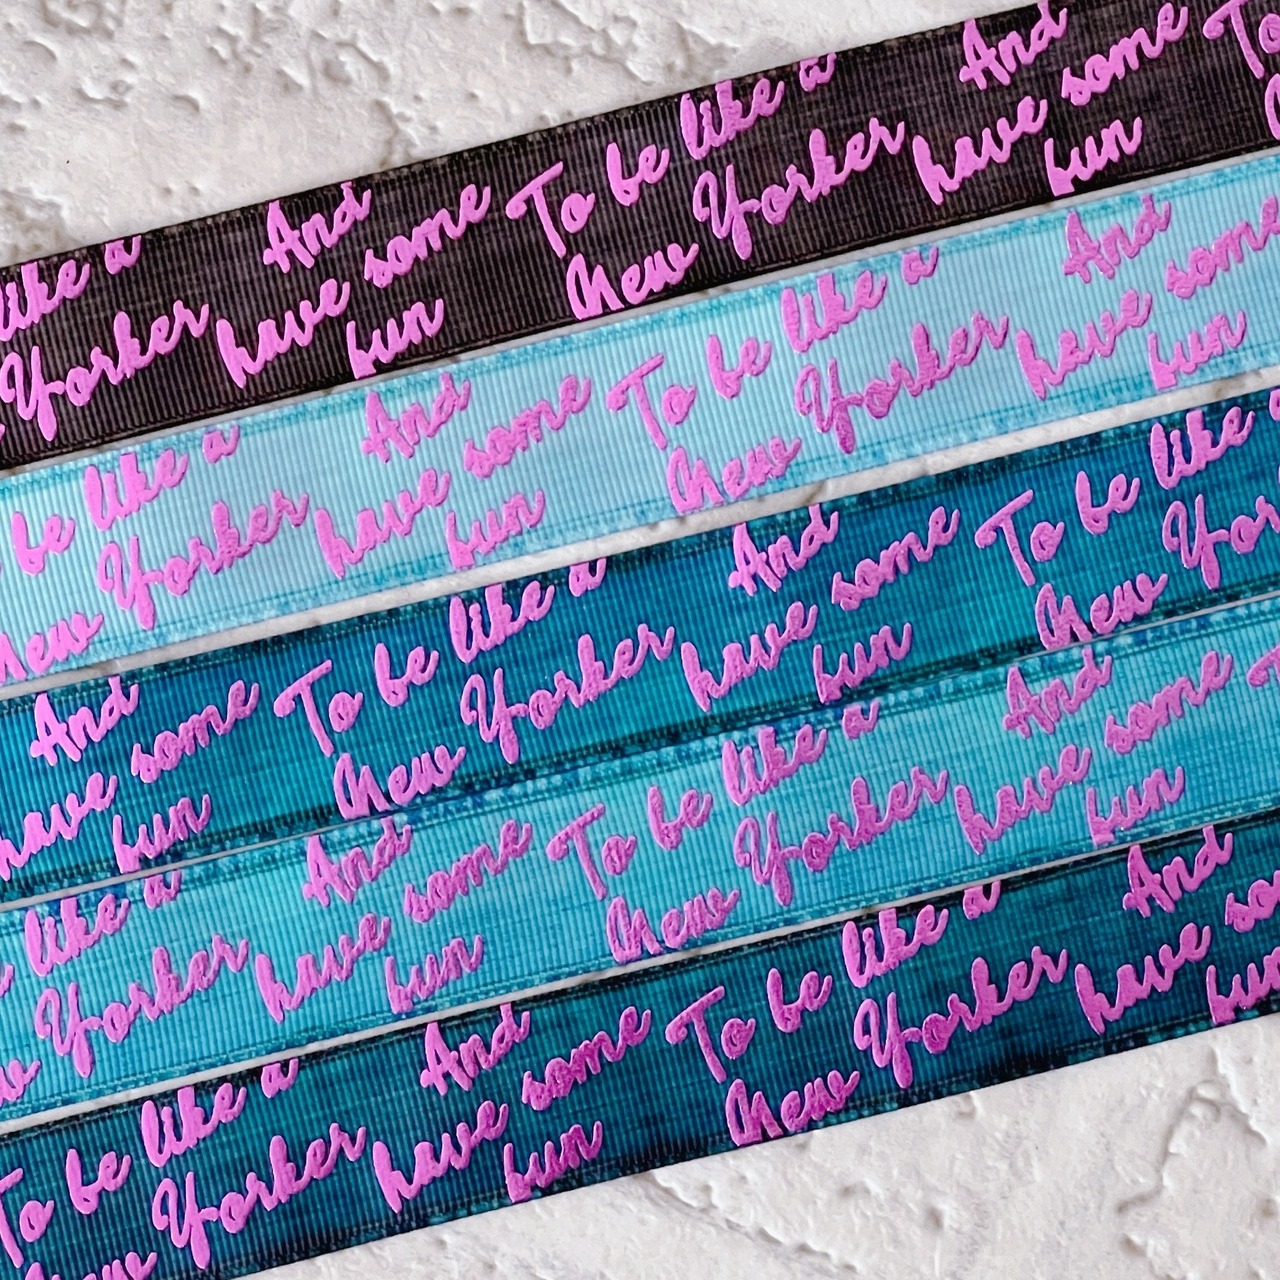 like a And To be like a And To
Yorker have some New Yorker have some
fun fun
be like a And To be like a And
New Yorker have some New Yorker have some
fun fun
And To be like a And To be like
have some New Yorker have some New
fun fun
like a And To be like a And
Yorker have some New Yorker have some
fun fun
To be like a And To be like a And
New Yorker have some New Yorker have
fun fun